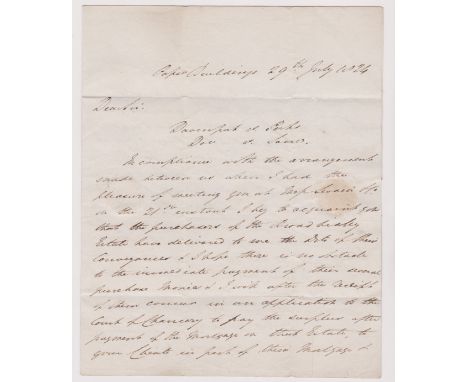 Paper Buildings 29th July 1824
Dear Sir
Davenport v Parks
Doe v Same
In compliance with the arrangement
made between us when I had the
pleasure of meeting you at Messrs
on the 21st instant I beg to acquaint you
that the purchasers of the
Estate have delivered to me the Dfts of their
Conveyances & I hope there is no obstacle
to the immediate payment of their several
purchase Monies & I will after the receipt
of them concur in an application to the
Court of Chancery to pay the surplus after
payment of the Mortgage on that Estate, to
your Clients in part of their Mortgage &